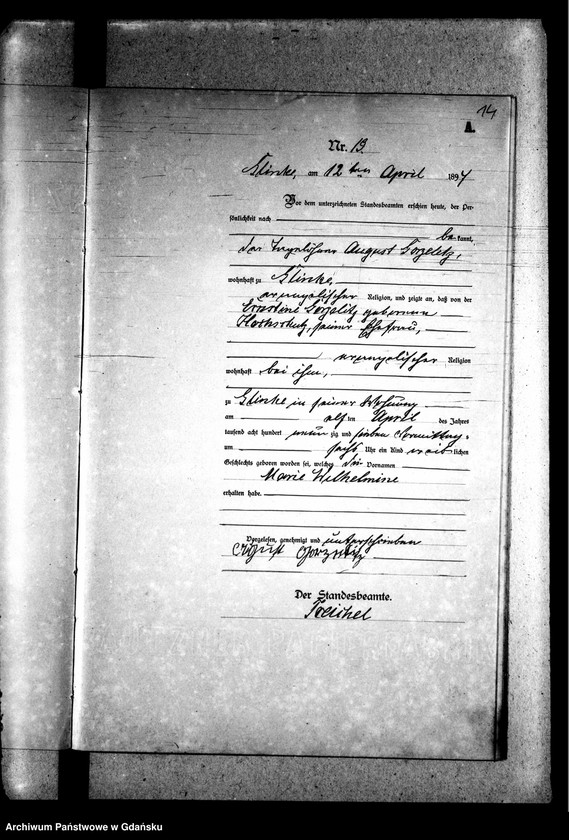 14
A.
Nr. 13.
Glinke, am 12ten April 1897
Vor dem unterzeichneten Standesbeamten erschien heute, der Per-
sönlichkeit nach
bekannt,
der Tagelöhner August Gorzelitz,
wohnhaft zu Glinke,
evangelischer Religion, und zeigte an, daß von der
Ernestine Gorzelitz geborenen
seiner Ehefrau,
evangelischer Religion
wohnhaft bei ihm,
zu Glinke in seiner Wohnung
am elf ten April des Jahres
tausend acht hundert neun zig und sieben Vormittags
um sechs Uhr ein Kind weib lichen
Geschlechts geboren worden sei, welches die Vornamen
Marie Wilhelmine
erhalten habe.
Vorgelesen, genehmigt und unterschrieben
August
Der Standesbeamte.
Archiwum Państwowe w Gdańsku